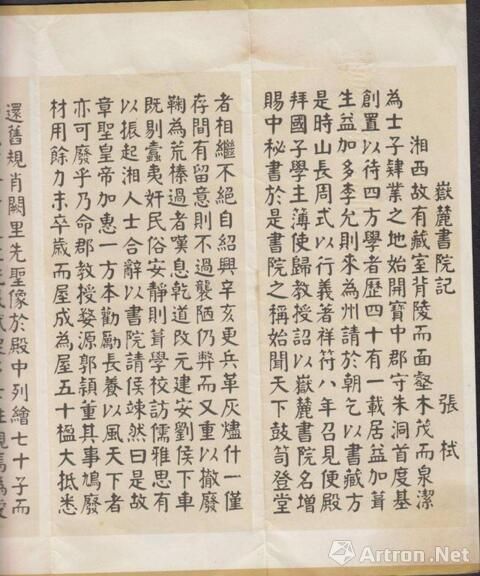 嶽麓書院記
張栻
湘西故有藏室背陵而面壑木茂而泉潔
為士子肄業之地始開寶中郡守朱洞首度基
創置以待四方學者歷四十有一載居益加葺
生益加多李允則來為州請於朝乞以書藏方
是時山長周式以行義著祥符八年召見便殿
拜國子學主簿使歸教授詔以嶽麓書院名增
賜中秘書於是書院之稱始聞天下鼓笥登堂
者相繼不絕自紹興辛亥更兵革灰燼什一僅
存間有留意則不過襲陋仍弊而又重以撤廢
鞠為荒榛過者嘆息乾道改元建安劉侯下車
既剔蠹夷奸民俗安靜則葺學校訪儒雅思有
以振起湘人士合辭以書院請侯竦然曰是故
章聖皇帝加惠一方本勸勵長養以風天下者
亦可廢乎乃命郡教授婺源郭頴董其事鳩廢
材用餘力未卒歲而屋成為屋五十楹大抵悉
還舊規肖闕里先聖像於殿中列繪七十子而
Artron.Net